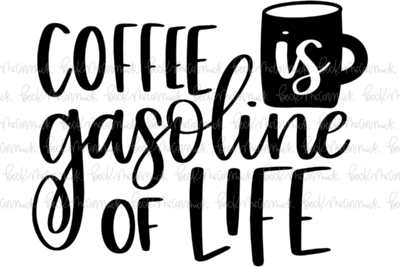 COFFEE is
gasoline
OF LIFE